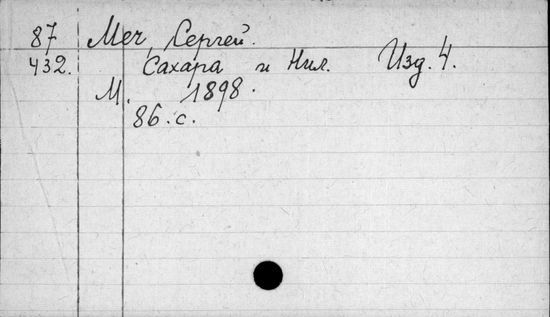 87 Меч, Сергей.
432. Сахара и Нил. Изд. 4.
М. 1898.
86. с.